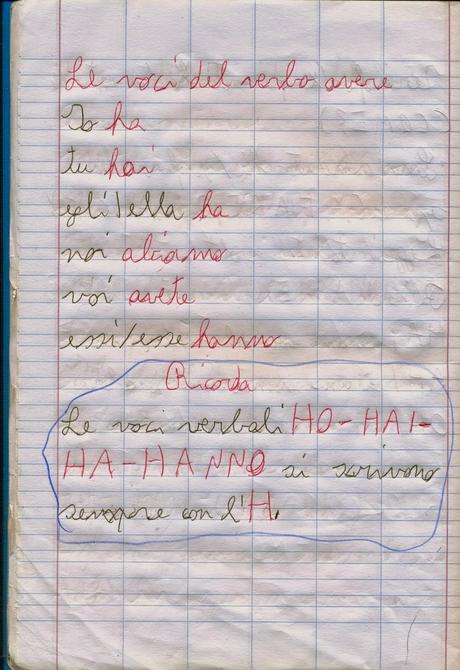 Le voci del verbo avere
Io ha
tu hai
egli/ella ha
noi abiamo
voi avete
essi/esse hanno
Ricorda
Le voci verbali HO-HAI-
HA-HANNO si scrivono
sempre con l'H.